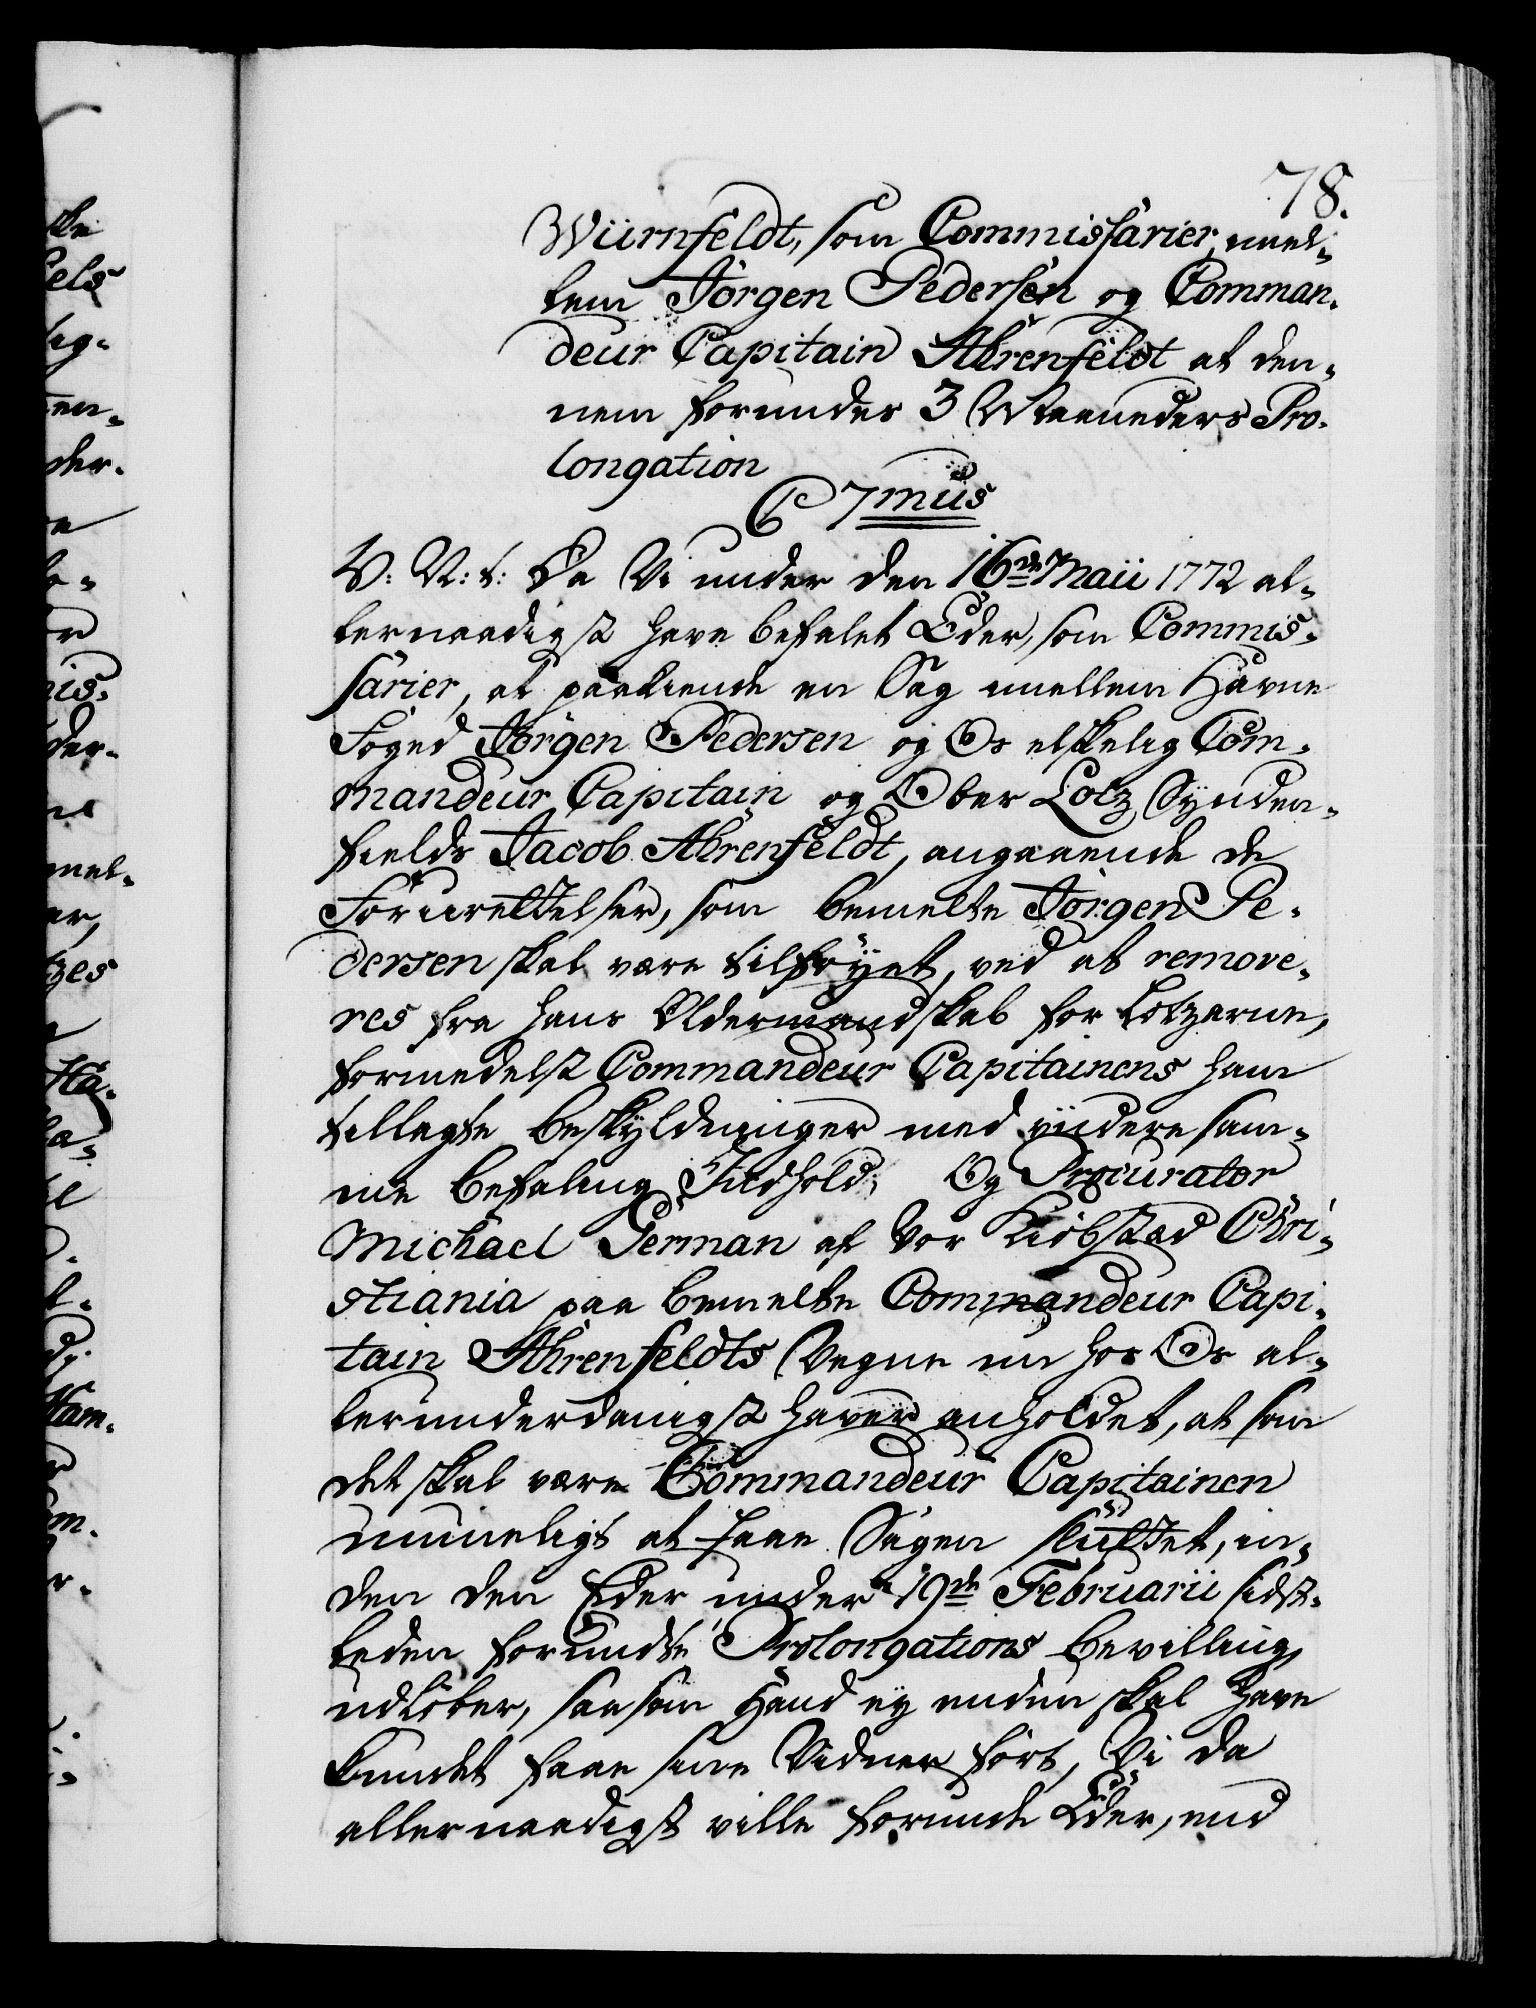 78.
Würnfeldt, som Commissarier, mel-
lem Jørgen Pedersen og Comman-
deur Capitain Ahrenfeldt at den-
nem forundes 3 Maaneders Pro-
longation
C 7mus
V: V: t: Da Vi under den 16de Maii 1772 al-
lernaadigst have befalet Eder, som Commis-
sarier, at paakiende en Sag mellem Havne
Foged Jørgen Pedersen og Os elskelig Com-
mandeur Capitain og Ober Lotz Synden-
fields Jacob Ahrenfeldt, angaaende de
Forurettelser, som bemelte Jørgen Pe-
dersen skal være tilføyet, ved at remove-
res fra hans Oldermandskab for Lotzerne,
formedelst Commandeur Capitainens ham
tillagte beskyldninger med viidere sam-
me befaling Indhold; Og Procurator
Michael German af Vor Kiøbstad Chri-
stiania paa bemelte Commandeur Capi-
tain Ahrenfeldts Vegne nu hos Os al-
lerunderdanigst haver anholdet, at som
det skal være Commandeur Capitainen
umueligt at faae Sagen sluttet, in-
den den Eder under 19de Februarii sidst-
leden forundte Prolongations bevilling
udløber, saasom Hand ey endnu skal have
kundet faae sine Vidner ført, Vi da
allernaadigst ville forunde Eder, end